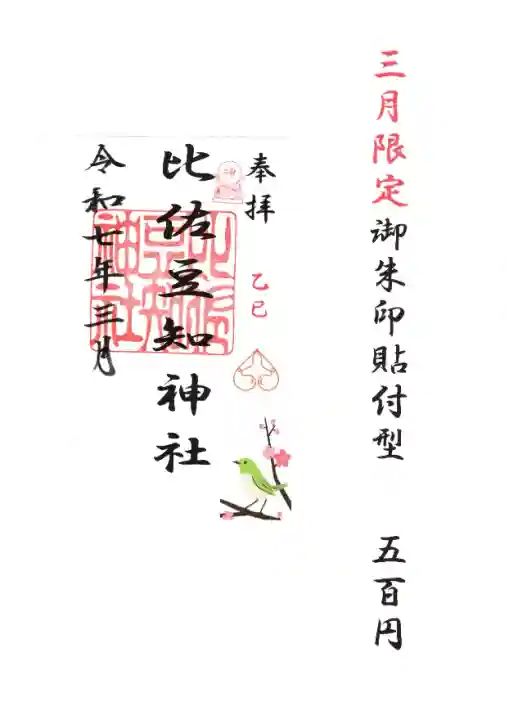 三月限定御朱印貼付型 五百円
奉拝
乙巳
比佐豆知神社
令和七年三月